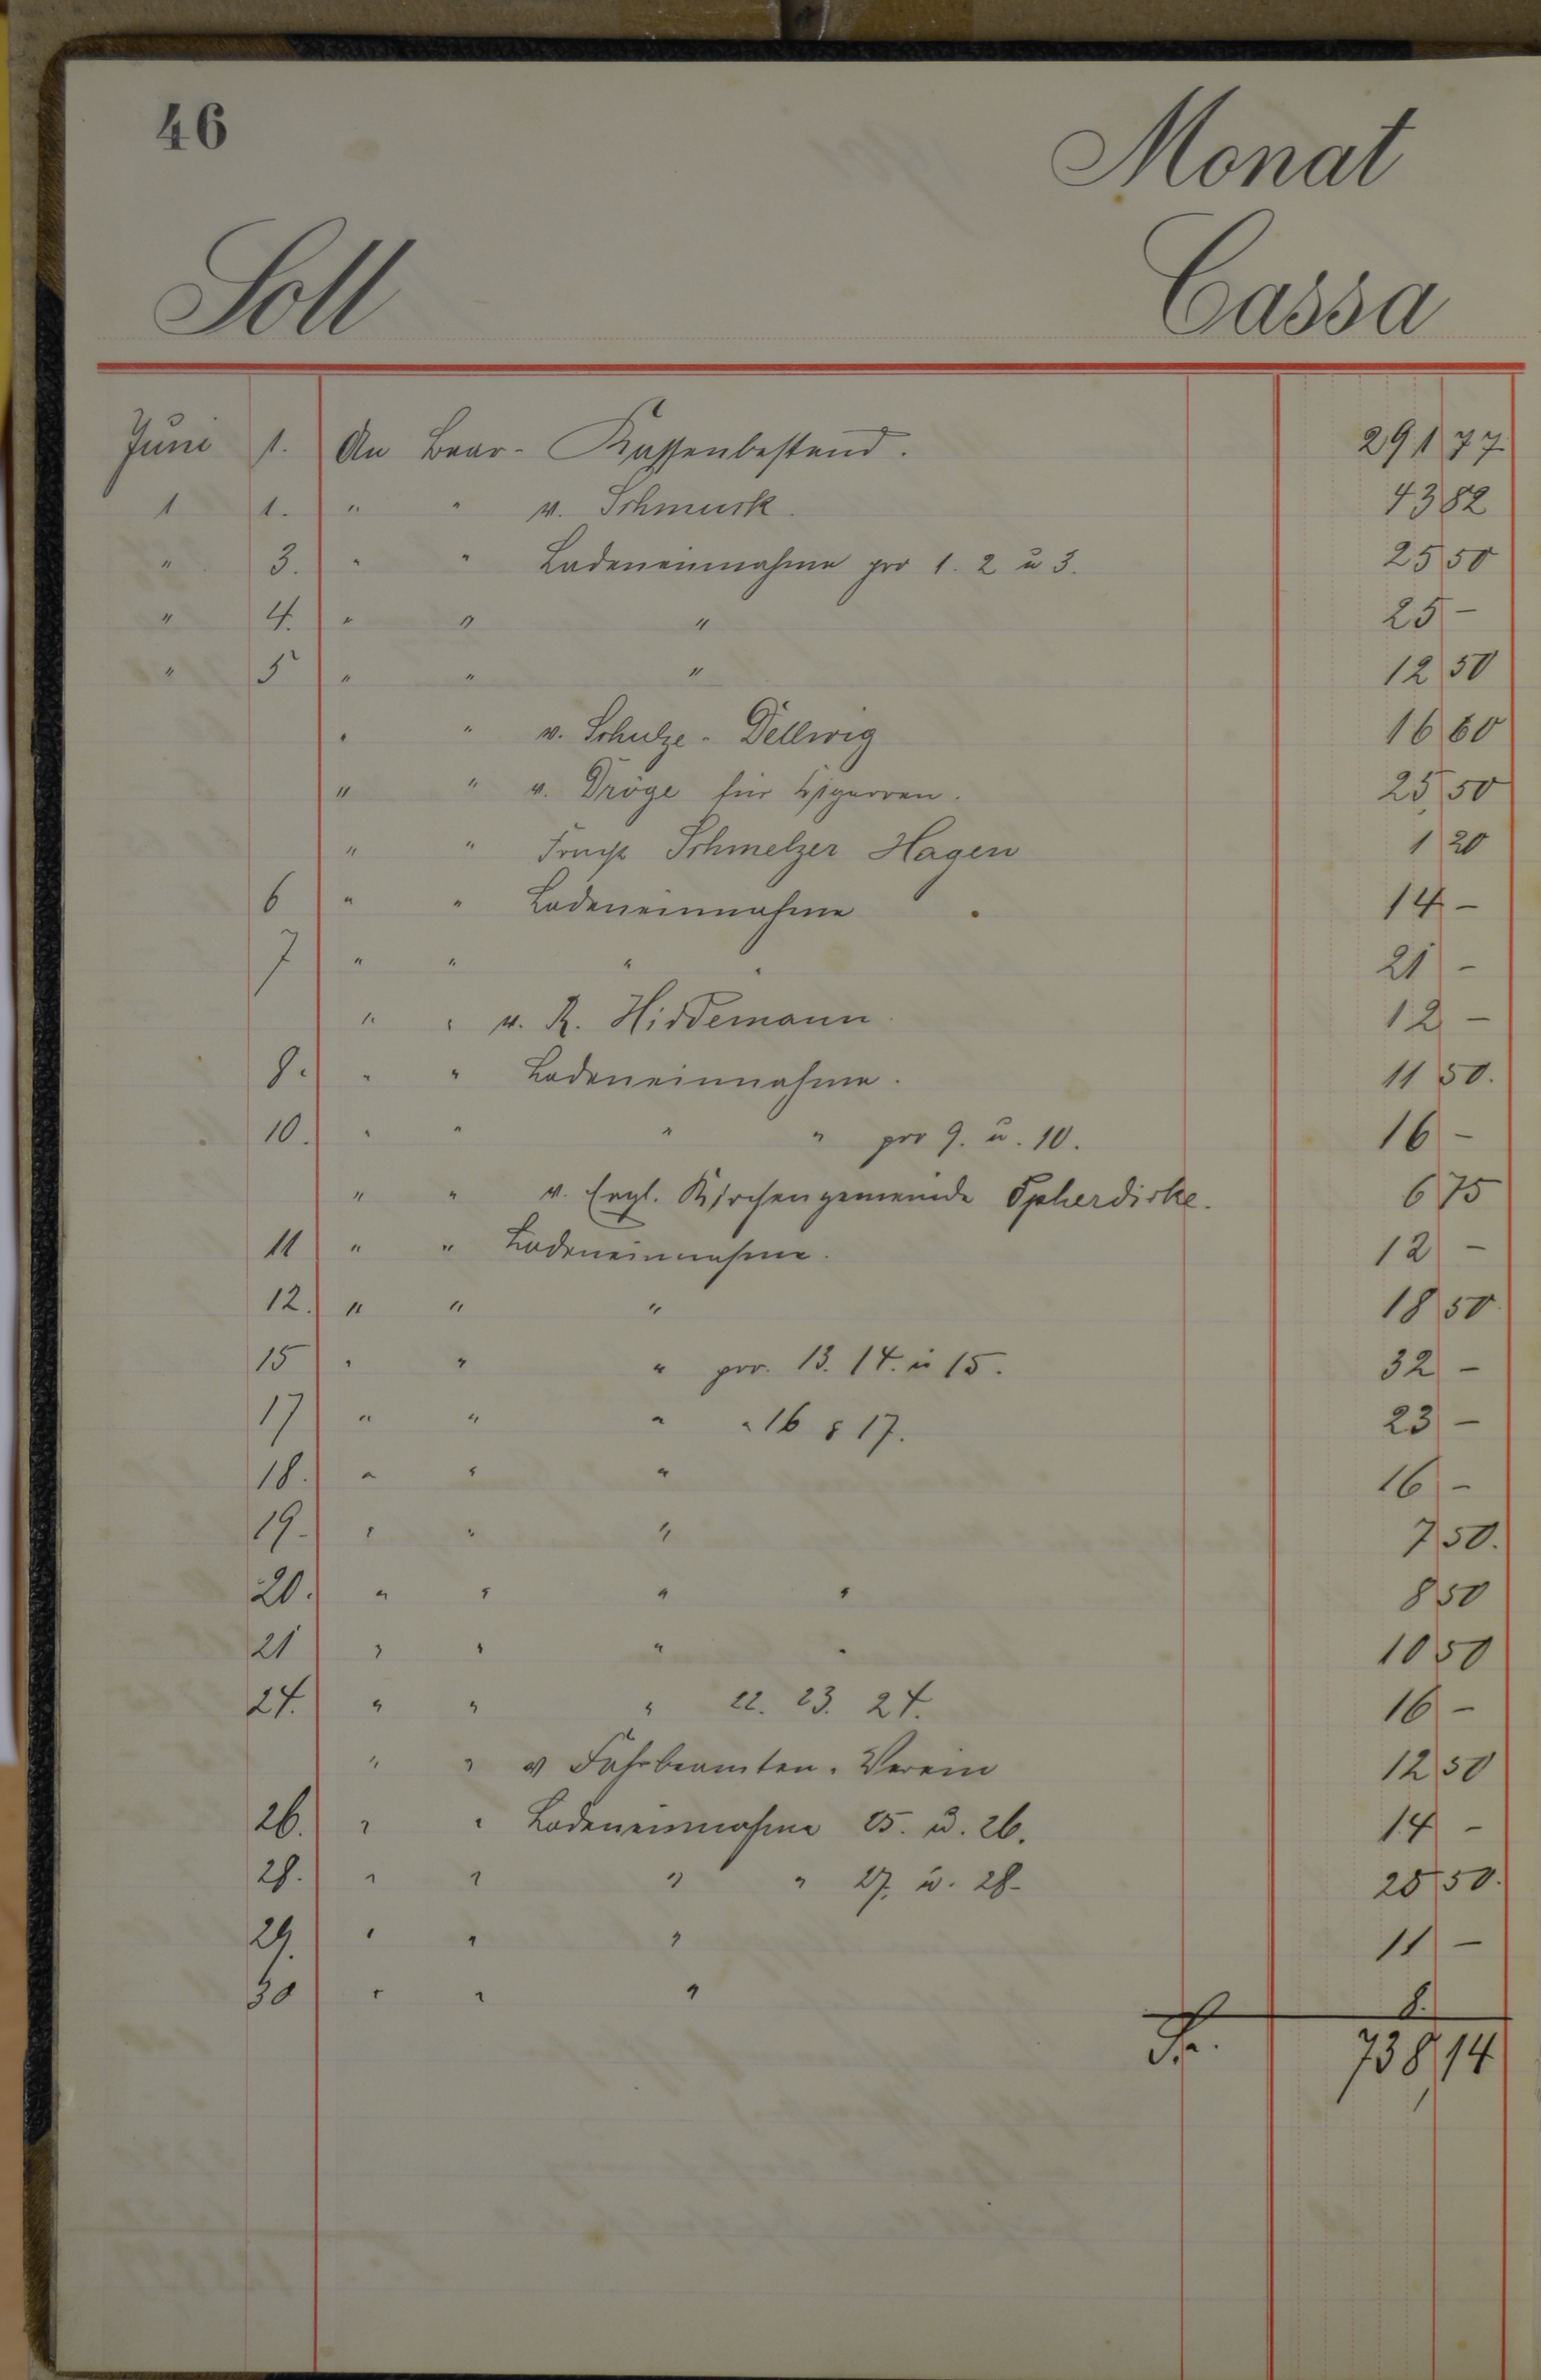 46
Monat
Soll Cassa
Juni 1. An Baar- Kassenbestand. 291 77
1 1. " " v. Schmurk. 43 82
" 3. " " Ladeneinnahme pro 1. 2 u 3. 25 50
" 4. " " " 25 -
" 5 " " " 12 50
" " v. Schulze-Dellwig 16 60
" " v. Dröge für Zigarren. 25,50
" " Schmelzer Hagen 1 20
6 " " Ladeneinnahme 14 -
7 " " " " 21 -
" " v. R. Hiddemann. 12 -
8. " " Ladeneinnahme. 11 50.
10. " " " " pro 9. u. 10. 16 -
" " v. Kirchengemeinde Opherdicke. 6 75
11 " " Ladeneinnahme. 12 -
12. " " " 18 50
15 " " " pro. 13. 14. u 15. 32 -
17 " " " " 16 & 17. 23 -
18. " " " 16 -
19. " " " 7,50.
20. " " " " 8 50
21 " " " " 10 50
24. " " " 22. 23. 24. 16 -
" " v Fahrbeamten-Verein 12 50
26. " " Ladeneinnahme 25. u. 26. 14 -
28. " " " " 27. u. 28- 25 50.
29. " " " 11 -
30 " " " 8.
738,14